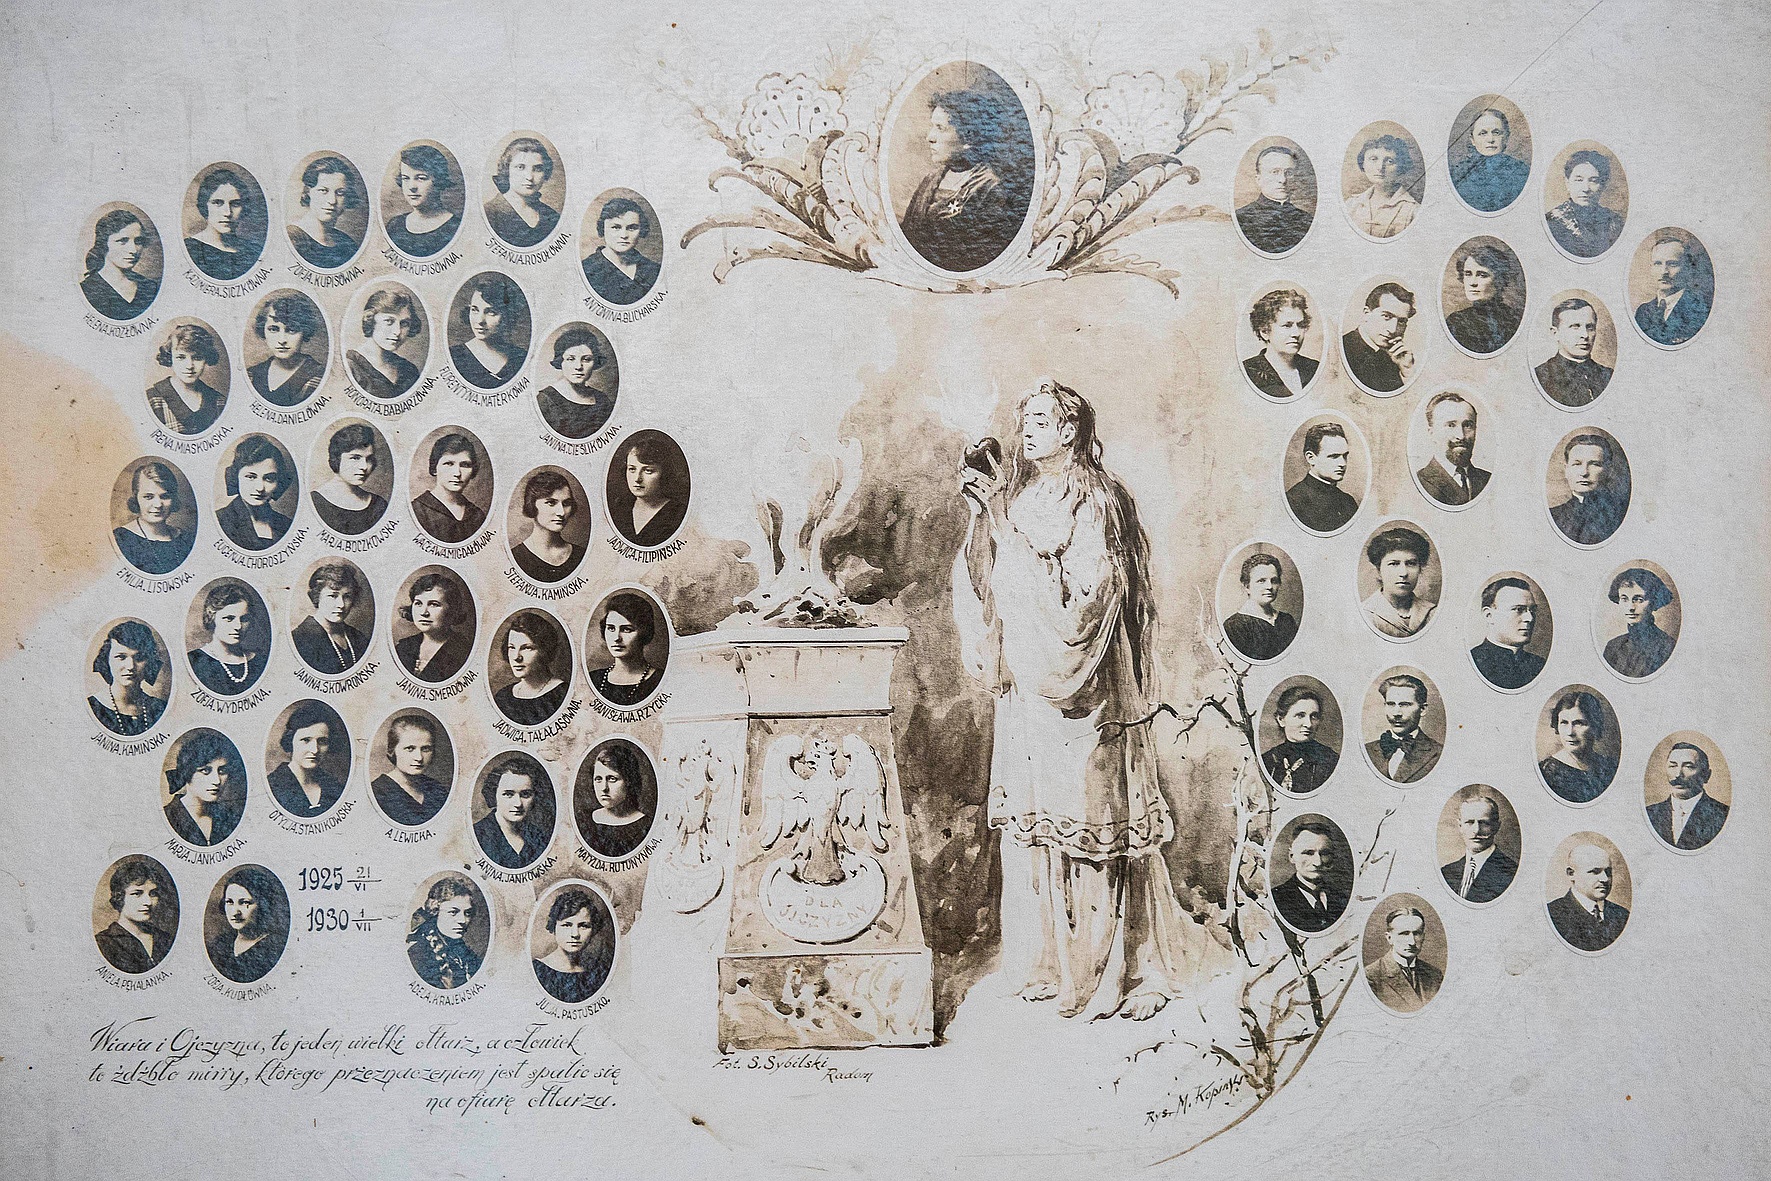 HELENA.KOZŁÓWNA.
KAZIMIERA.SICZKÓWNA.
ZOFJA.KUPISÓWNA.
JOANNA.KUPISÓWNA.
STEFANJA.ROSOŁÓWNA.
ANTONINA.BLICHARSKA.
IRENA.MIASKOWSKA.
HELENA.DANIELÓWNA.
HONORATA.BABIARZÓWNA.
FLORENTYNA.MATERKÓWNA
JANINA.CIEŚLIKÓWNA.
EMILJA.LISOWSKA.
EUGENJA.CHOROSZYŃSKA.
MARJA.BOCZKOWSKA.
WACŁAWA.MIGDAŁÓWNA.
STEFANJA.KAMIŃSKA.
JADWIGA.FILIPIŃSKA.
JANINA.KAMIŃSKA.
ZOFJA.WYDRÓWNA.
JANINA.SKOWROŃSKA.
JANINA.SMERDÓWNA
JADWIGA.TAŁAŁASÓWNA.
STANISŁAWA.RZYCKA.
MARJA.JANKOWSKA.
OTYLJA.STANIKOWSKA.
A.LEWICKA.
JANINA.JANKOWSKA.
MATYLDA.RUTUNYNÓWA.
ANIELA.PĘKALANKA.
ZOFJA.KUDŁÓWNA.
1925 21/VI
1930 1/VII
ADELA.KRAJEWSKA.
JULJA.PASTUSZKO.
DLA
OJCZYZNY
Wiara i Ojczyzna, to jeden wielki ołtarz, a człowiek
to źdźbło mirry, którego przeznaczeniem jest spalić się
na ofiarę ołtarza.
Fot. S. Sybilski
Radom
Rys. M. Kopiński